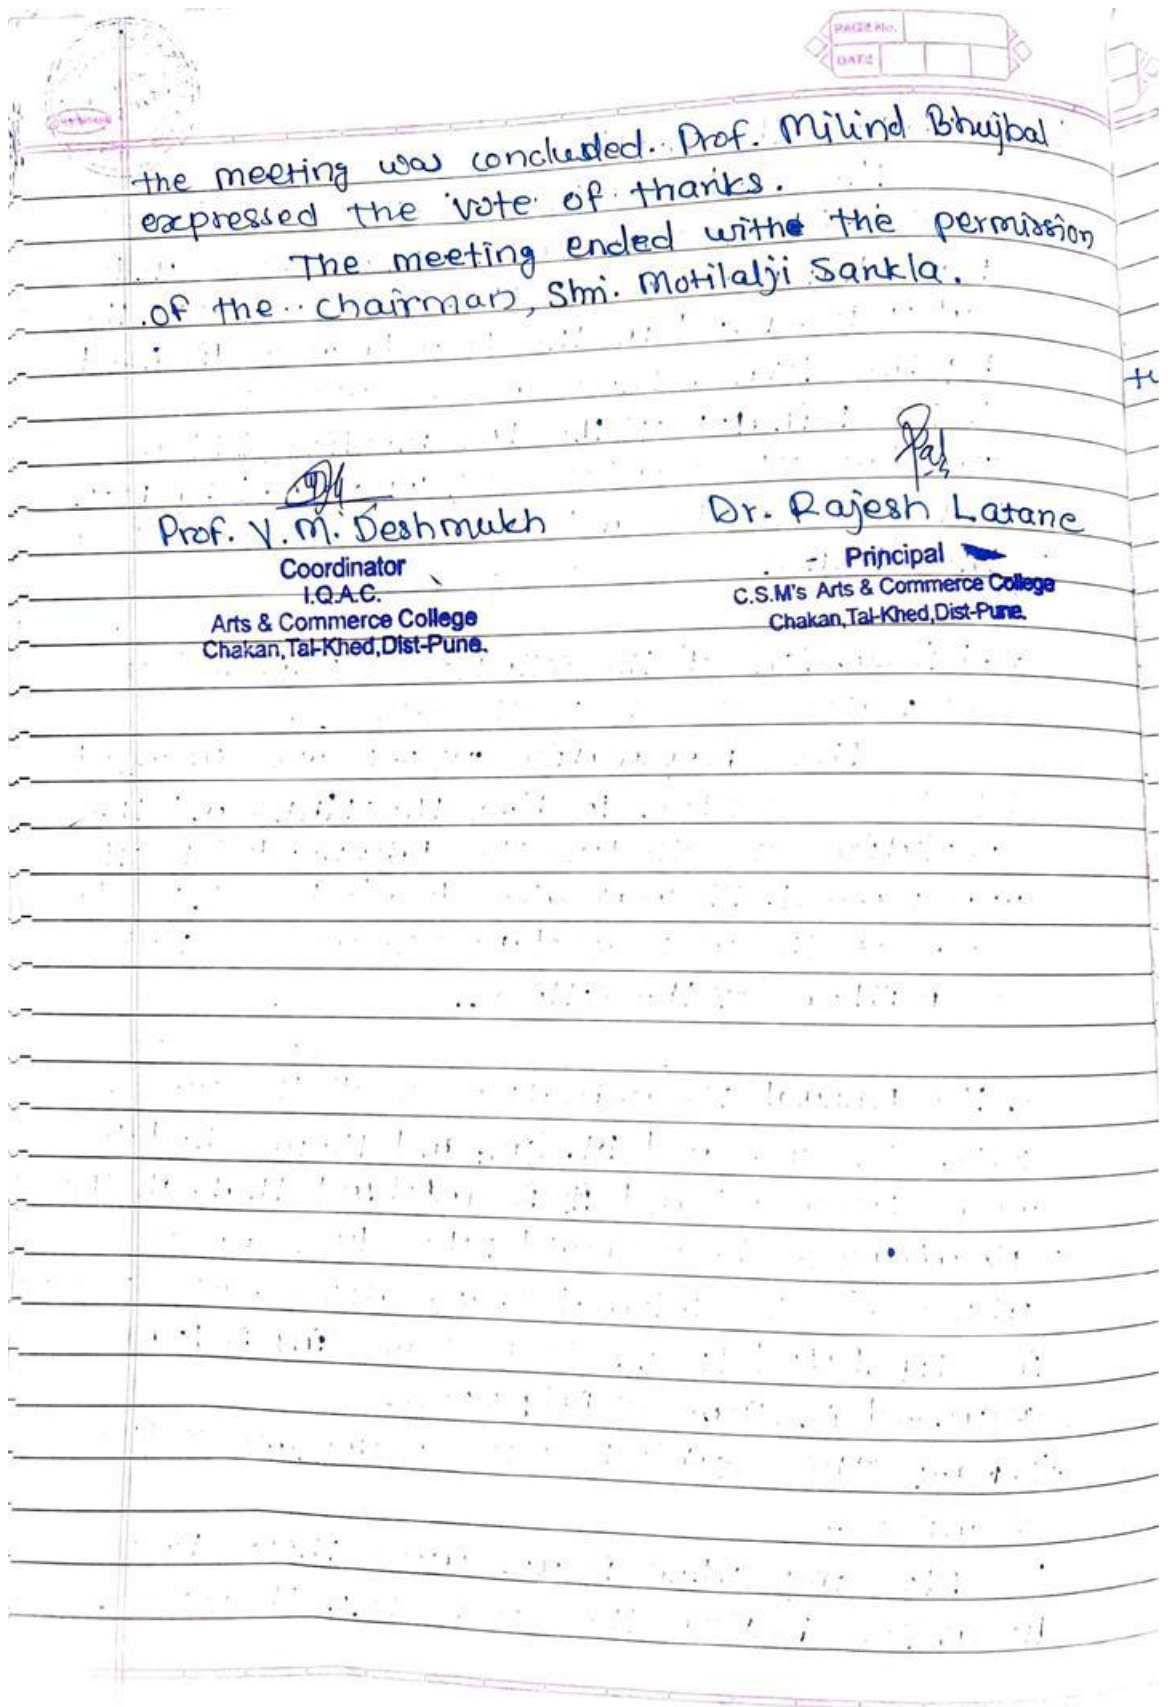 PAGE No.
DATE
the meeting was concluded. Prof. Milind Bhujbal
expressed the vote of thanks.
The meeting ended with the permission
of the chairman, Shri. Motilalji Sankla.
Prof. V. M. Deshmukh
Coordinator
I.Q.A.C.
Arts & Commerce College
Chakan,Tal-Khed,Dist-Pune.
Dr. Rajesh Latane
Principal
C.S.M's Arts & Commerce College
Chakan,Tal-Khed,Dist-Pune.